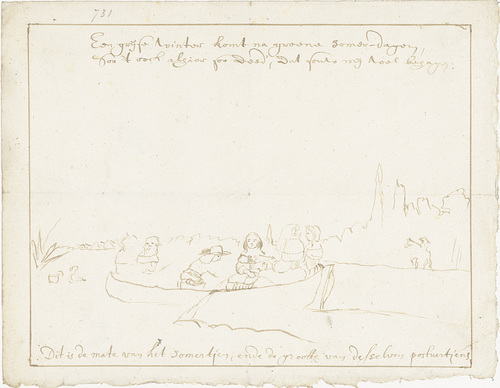 731
Een grijse winter komt na groene somer-dagen,
Soo 't oock alhier soo deed', dat sou mij wel behagen.
Dit is de mate van het somertjen, ende de grootte van deselven postuertjens